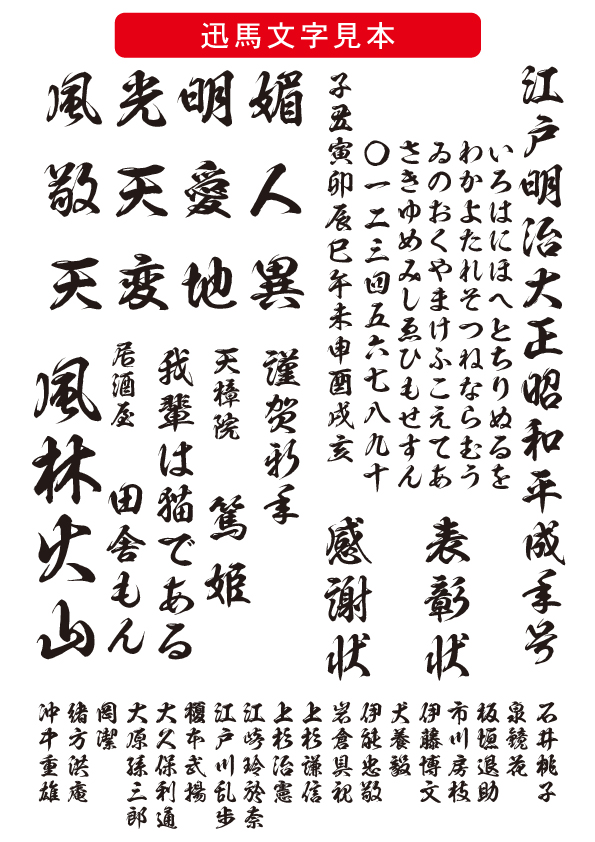 迅馬文字見本
江戸明治大正昭和平成年号
いろはにほへとちりぬるを
わかよたれそつねならむう
ゐのおくやまけふこえてあ
さきゆめみしゑひもせすん
〇一二三四五六七八九十
子丑寅卯辰巳午未申酉戌亥
表彰状
感謝状
媚人異
明愛地
光天変
風敬天
謹賀新年
天樟院 篤姫
我輩は猫である
居酒屋 田舎もん
風林火山
石井桃子
泉鏡花
板垣退助
市川房枝
伊藤博文
犬養毅
伊能忠敬
岩倉具視
上杉謙信
上杉治憲
江崎玲於奈
江戸川乱歩
榎本武揚
大久保利通
大原孫三郎
岡潔
緒方洪庵
沖中重雄